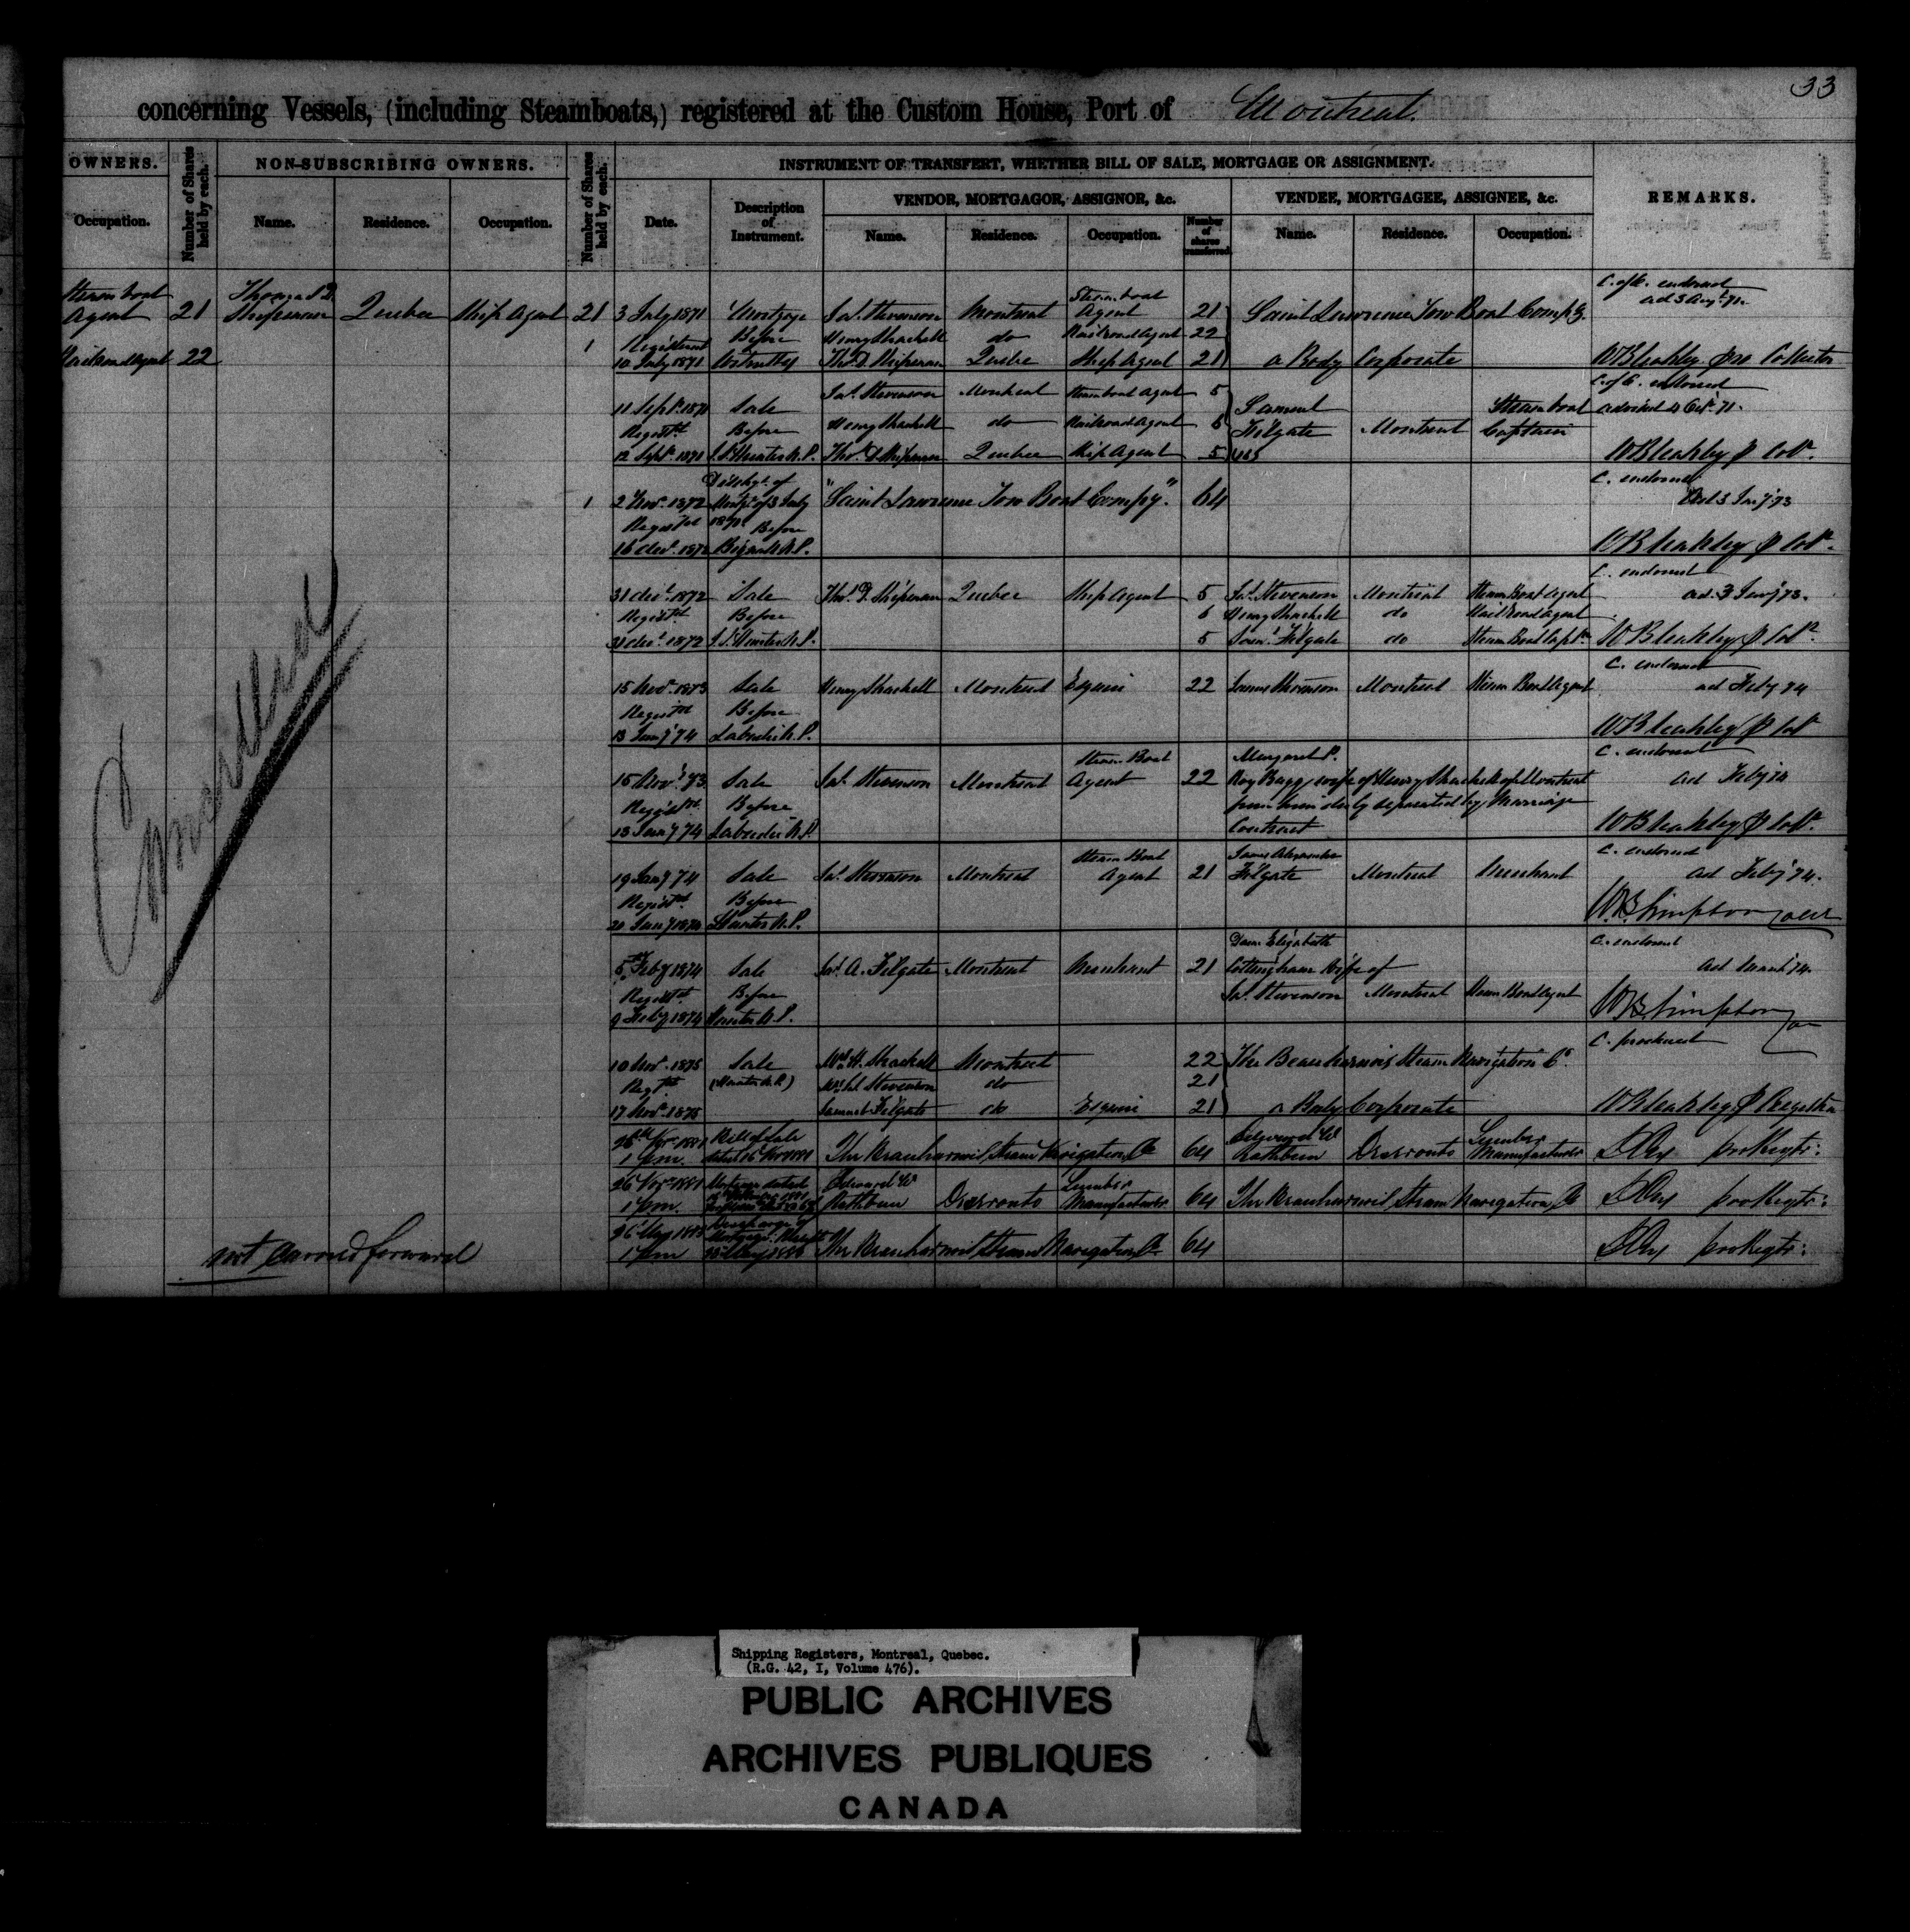 33
concerning Vessels, (including Steamboats,) registered at the Custom House, Port of Montreal.
OWNERS.
Occupation.
Number of Shares held by each.
NON-SUBSCRIBING OWNERS.
Name. Residence. Occupation.
Number of Shares held by each.
INSTRUMENT OF TRANSFERT, WHETHER BILL OF SALE, MORTGAGE OR ASSIGNMENT.
Date. Description of Instrument.
VENDOR, MORTGAGOR, ASSIGNOR, &c.
Name. Residence. Occupation. Number of shares transferred
VENDEE, MORTGAGEE, ASSIGNEE, &c.
Name. Residence. Occupation.
REMARKS.
Steam boat Thomas D. Steamboat C. of R. endorsed
Agent 21 Shipman Quebec Ship Agent 21 3 July 1871 Mortgage Jas. Stevenson Montreal Agent 21 Saint Lawrence Tow Boat Compy. ad 3 Augt. 71.
1 Registered Before Henry Shackell do Railroad Agent 22
Railroad Agent 22 10 July 1871 Thos. D. Shipman Quebec Ship Agent 21 a Body Corporate W Bleakley pro Collector
Jas. Stevenson Montreal Steamboat Agent 5 C. of R. endorsed
11 Sept. 1871 Sale Samuel Steamboat advised 4 Oct. 71.
Registd. Before Henry Shackell do Railroad Agent 6 Filgate Montreal Captain
12 Sept. 1871 J.S. Hunter N.P. Thos. D. Shipman Quebec Ship Agent 5 W Bleakley p Colr.
Dischge. of C. endorsed
1 2 Nov. 1872 Mortge. of 3 July "Saint Lawrence Tow Boat Compy." 64 Ad 3 Jany 73
Registd 1871 Before
16 Decr. 1872 N.P. W Bleakley p Colr.
C. endorsed
31 Decr. 1872 Sale Thos. D. Shipman Quebec Ship Agent 5 Jas. Stevenson Montreal Steam Boat Agent ad. 3 Jany 73.
Registd. Before 6 Henry Shackell do Rail Road Agent
31 Decr. 1872 J.S. Hunter N.P. 5 Saml. Filgate do Steam Boat Captn. W Bleakley p Colr.
C. endorsed
15 Novr. 1873 Sale Henry Shackell Montreal Esquire 22 James Stevenson Montreal Steam Boat Agent ad Feby 74
Registd Before
13 Jany 74 Labadie N.P. W Bleakley p Colr
Steam Boat Margaret P. C. endorsed
15 Novr. 73 Sale Jas. Stevenson Montreal Agent 22 Roy Bagg, wife of Henry Shackell of Montreal ad Feby 74
Registd. Before from him duly separated by Marriage
13 Jany 74 Labadie N.P. Contract W Bleakley p Colr.
Steam Boat James Alexander C. endorsed
19 Jany 74 Sale Jas. Stevenson Montreal Agent 21 Filgate Montreal Merchant ad Feby 74.
Registd. Before
20 Jany 1874 Hunter N.P. W.B. Simpson Colr
Dame Elizabeth C. endorsed
5 Feby 1874 Sale Jas. A. Filgate Montreal Merchant 21 Cottingham Wife of ad March 74.
Registd. Before Jas. Stevenson Montreal Steam Boat Agent
9 Feby 1874 Hunter N.P. W.B. Simpson
C. produced
10 Nov. 1875 Sale Mrs. H. Shackell Montreal 22 The Beauharnois Steam Navigation Co.
Regtd (Hunter N.P.) Mrs. Stevenson do 21
17 Novr. 1875 Samuel Filgate do Esquire 21 a Body Corporate W Bleakley p Registrar
26th Nov. 1881 Bill of Sale Edward W. Lumber
1 pm. The Beauharnois Steam Navigation Co 64 Rathbun Deseronto Manufacturer pro Regtr:
26 Nov. 1881 Mortgage dated Edward W Lumber
1 pm. Rathbun Deseronto Manufacturer 64 The Beauharnois Steam Navigation Co pro Regtr:
Discharge of
1 pm The Beauharnois Steam Navigation Co 64 pro Regtr:
not carried forward
Shipping Registers, Montreal, Quebec.
(R.G. 42, I, Volume 476).
PUBLIC ARCHIVES
ARCHIVES PUBLIQUES
CANADA